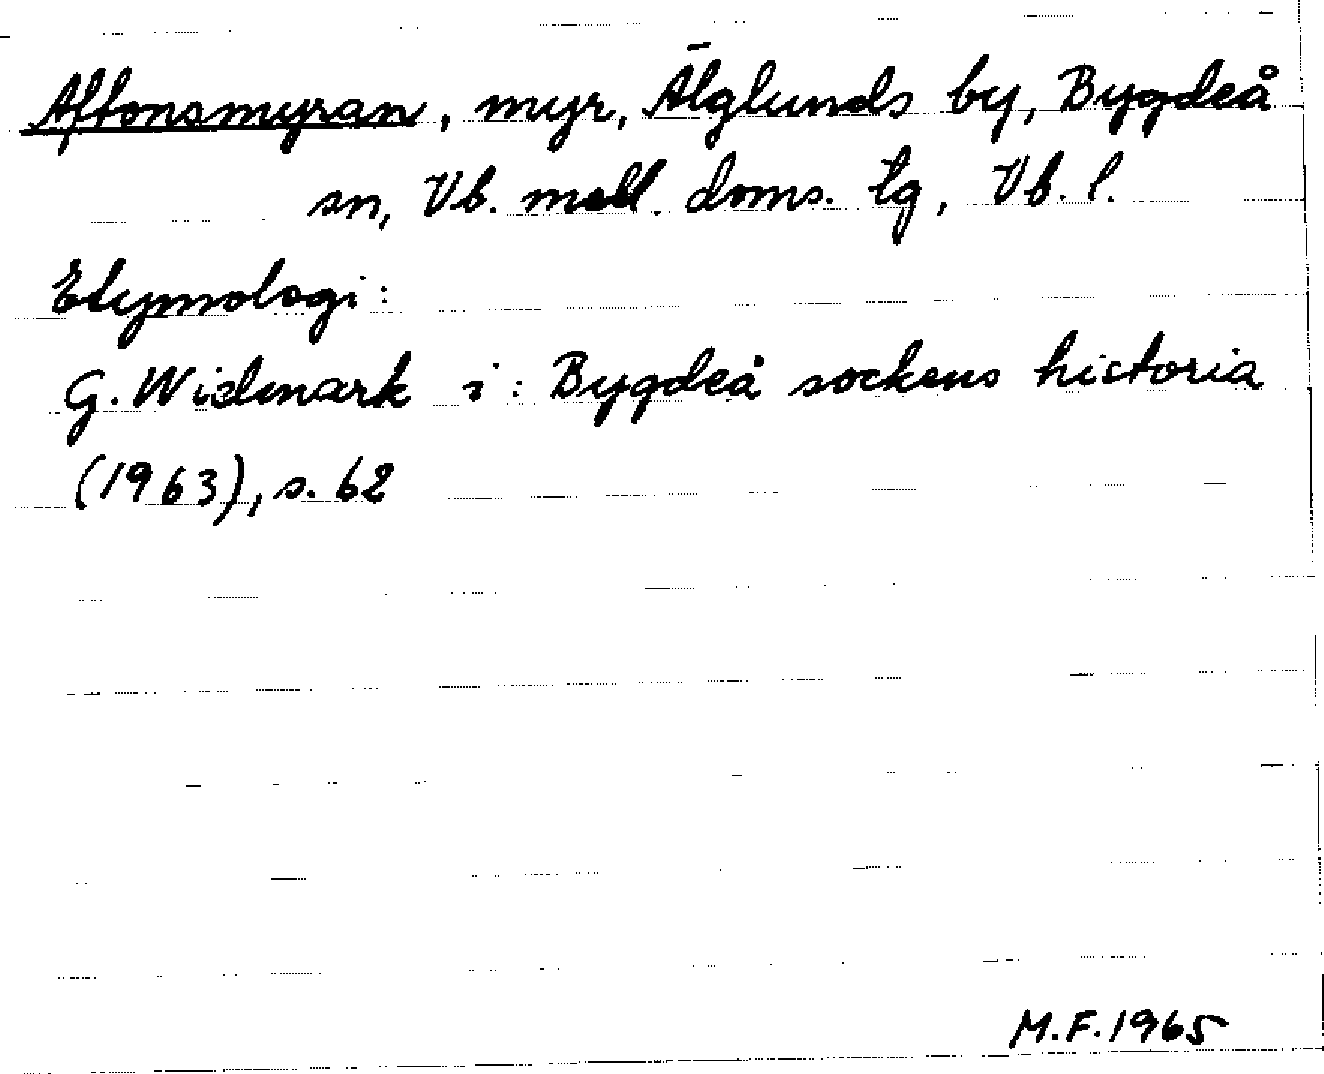 Aftonsmyran, myr, Älglunds by, Bygdeå
sn, Vb. mell. doms. tg, Vb. l.
Etymologi:
G. Widmark i: Bygdeå sockens historia
(1963), s. 62
M.F. 1965